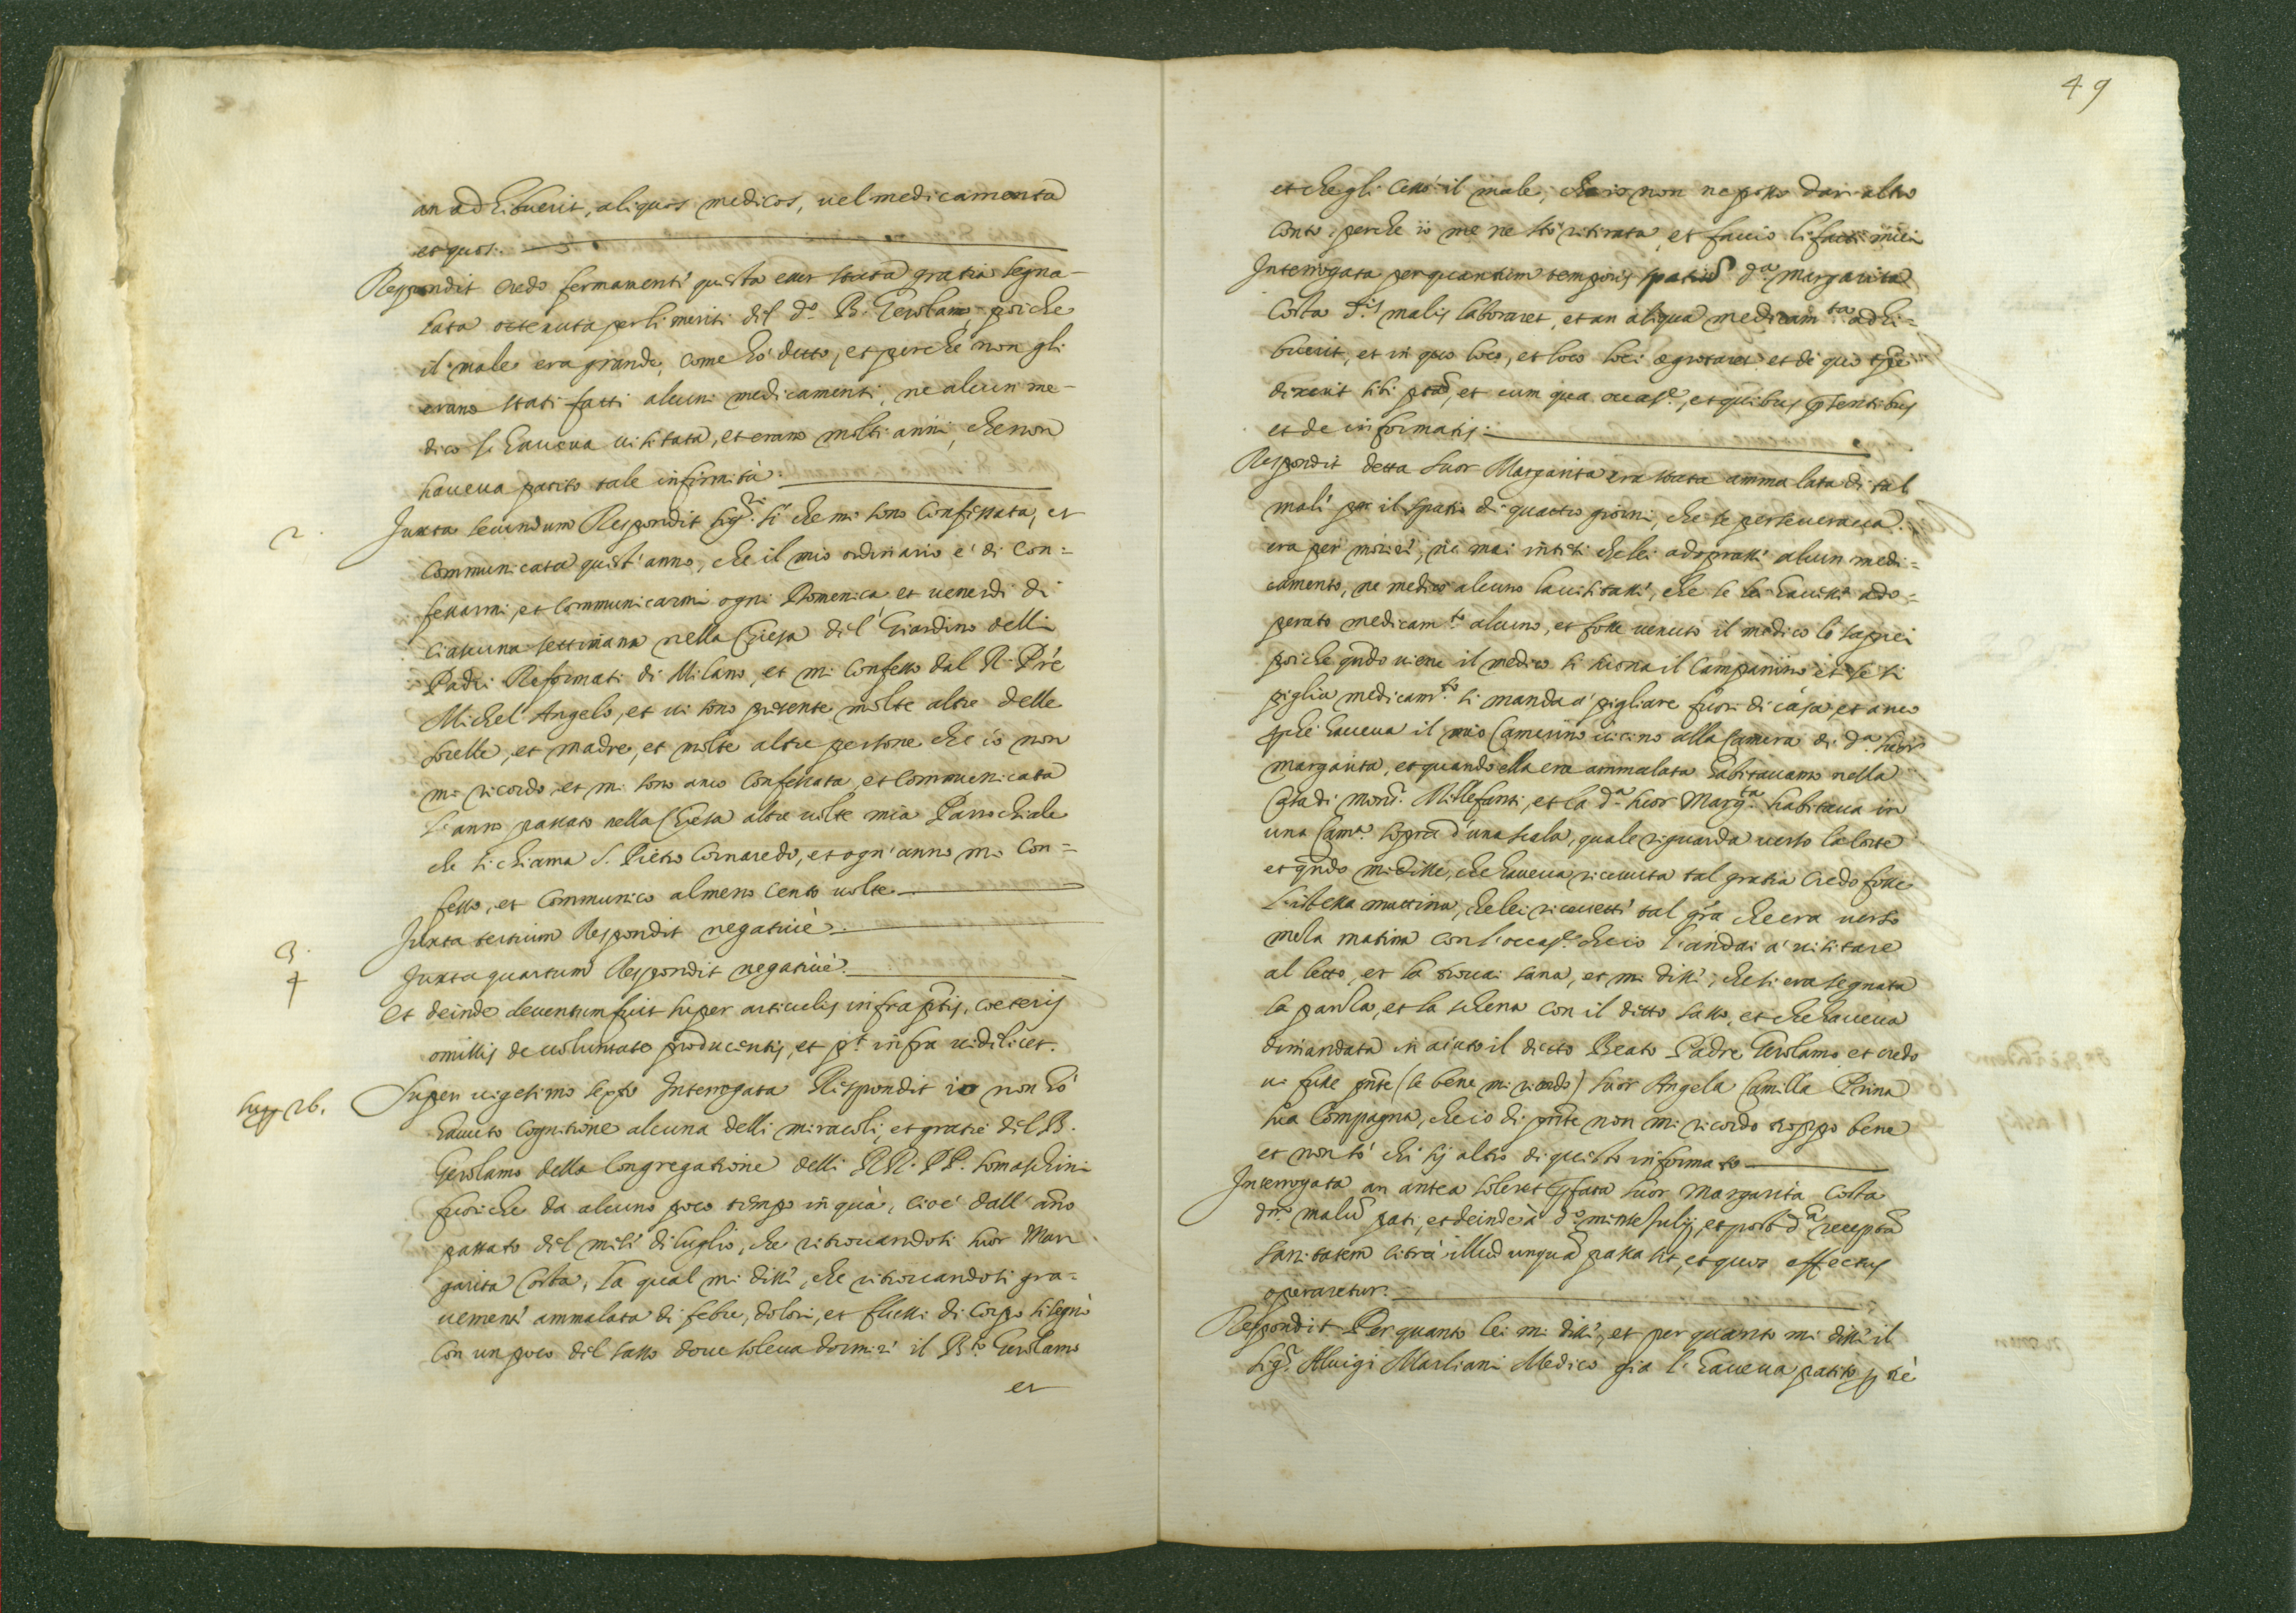 an adhibuerit, aliquos medicos, uel medicamenta
et quos.
Respondit credo fermamente questa esser stata gratia segna-
lata ottenuta per li meriti del d.º B. Gerolamo, poiche
il male era grande, come hò detto, et perche non gli
erano stati fatti alcuni medicamenti, ne alcun me-
dico l'haueua uisitata, et erano molti anni, che non
haueua patito tale infirmità.
2. Juxta secundum Respondit sig.re sì che mi sono Confessata, et
Communicata quest'anno, che il mio ordinario e' di Con=
fessarmi, et Communicarmi ogni Domenica et uenerdi di
ciascuna settimana nella Chiesa del Giardino delli
Padri Reformati di Milano, et mi Confesso dal R. Prē
Michel Angelo, et ui sono presente molte altre delle
sorelle, et madre, et molte altre persone che io non
mi ricordo, et mi sono anco Confessata, et Communicata
l'anno passato nella Chiesa altre uolte mia Parrochiale
che si chiama S. Pietro Cornaredo, et ogn'anno mi Con=
fesso, et Communico almeno cento uolte
3. Juxta tertium Respondit negatiuè.
4 Juxta quartum Respondit negatiuè.
Et deinde deuentum fuit super articulis infraptis, coeteris
omissis de uoluntate producentis, et pt infra uidelicet.
Supp 26. Super uigesimo sexto Interrogata Respondit io non hò
hauuto cognitione alcuna delli miracoli, et gratie del B.
Gerolamo della Congregatione delli RR. PP. Somaschini
fuoriche da alcuno poco tempo in quà, cioe' dall'anno
passato del mese di luglio, che ritrouandosi suor Mar
garita Costa, la qual mi disse, che ritrouandosi gra=
uemente ammalata di febre, dolori, et flussi di corpo si segnò
con un poco del sasso doue soleua dormire il B.to Gerolamo
et
49
et che gli cessò il male, che io non ne posso dar altro
conto, perche io me ne stò ritirata, et faccio li fatti miei
Interrogata per quantum temporis spatiū d.a Margarita
Costa d.is malis laboraret, et an aliqua medicam.ta adhi=
buerit, et in quo loco, et loco loci aegrotaret et de quo tpre
dixerit sibi ptā, et cum qua occas.e, et quibus pntibus
et de informatis.
Respondit detta Suor Margarita era stata ammalata di tal
male per il spatio di quattro giorni, che se perseueraua
era per morire, ne mai intesi che lei adoprasse alcun medi=
camento, ne medico alcuno la uisitasse, che se lei hauesse ado=
perato medicam.to alcuno, et fosse uenuto il medico lo saprei
poiche qndo uiene il medico si suona il Campanino et se si
piglia medicam.to si manda a' pigliare fuori di casa, et anco
pche haueua il mio Camerino uicino alla Camera di d.a suor
Margarita, et quando ella era ammalata habitauamo nella
Casa di Mons.r Millefanti, et la d.a suor Marg.ta habitaua in
una Cam.a sopra d'una scala, quale riguarda uerso la Corte
et qndo mi disse, che haueua riceuuta tal gratia credo fosse
l'istessa mattina, che lei riceuette tal gra che era uerso
meza matina con l'occas.e che io l'andai a' uisitare
al letto, et la trouai sana, et mi disse, che si era segnata
la panza, et la schena con il ditto sasso, et che haueua
dimandata in aiuto il ditto Beato Padre Gerolamo et credo
ui fusse pnte (se bene mi ricordo) suor Angela Camilla Prina
sua Compagna, che io di pnte non mi ricordo troppo bene
et non sò chi sij altro di questo informato
Interrogata an antea soleret pfata suor Margarita Costa
d.m malū pati, et deinde à d.o mense Julij, et post d.ā receptā
sanitatem citra illud unquā passa sit, et quos effectus
operaretur.
Respondit Per quanto lei mi disse, et per quanto mi disse il
sig.r Aluigi Marliani Medico gia l'haueua patito p tre